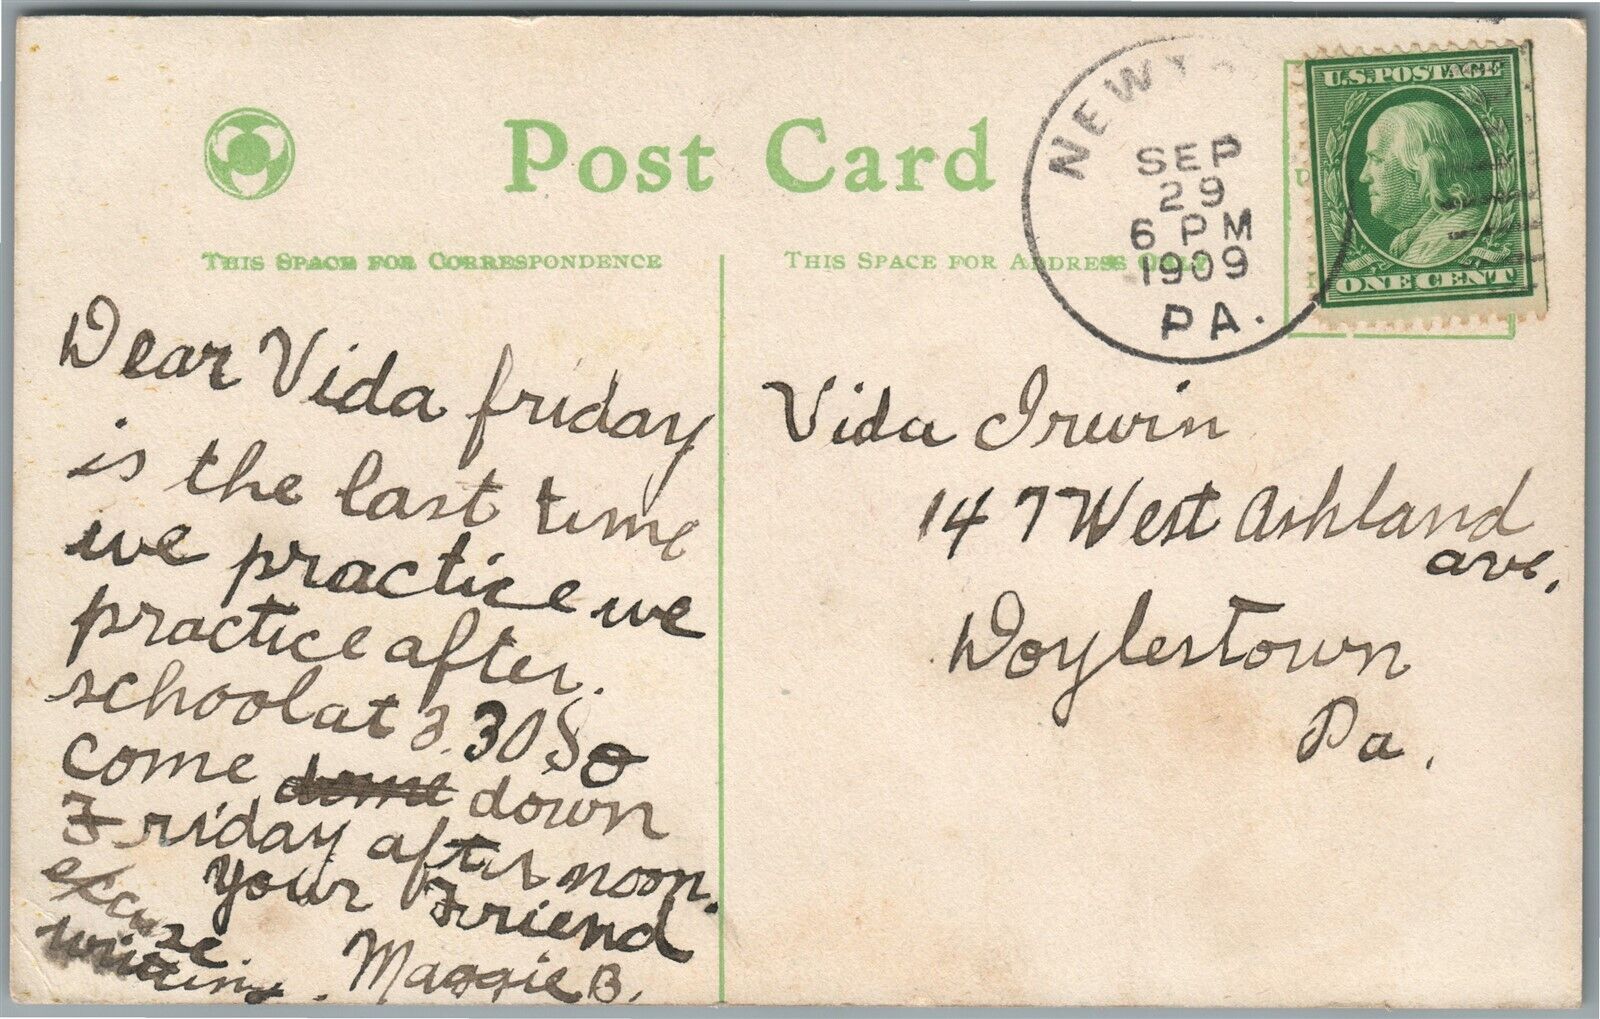 Post Card
THIS SPACE FOR CORRESPONDENCE
THIS SPACE FOR ADDRESS ONLY
NEW
SEP
29
6 PM
1909
PA.
U.S. POSTAGE
ONE CENT
Dear Vida friday
is the last time
we practice we
practice after.
school at 3.30 So
come down
Friday afternoon.
Your Friend
excuse
writing. Maggie B.
Vida Irwin
147 West Ashland
ave.
Doylestown
Pa.